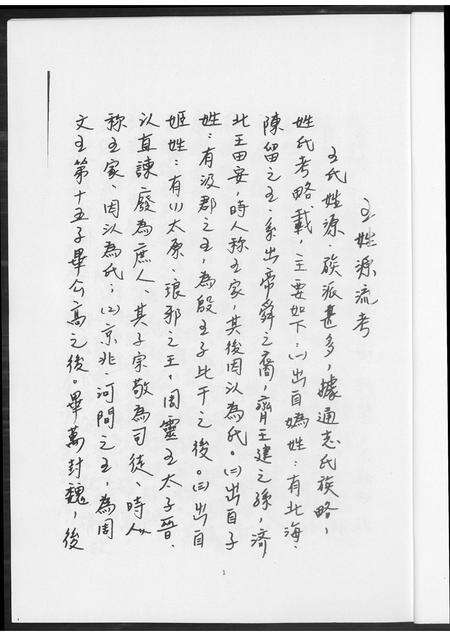 王姓源流考
王氏姓源,族派甚多,據通志氏族略,
姓氏考略載,主要如下:(一)出自媯姓:有北海、
陳留之王,系出帝舜之裔,齊王建之孫,濟
北王田安,時人称王家,其後因以為氏。(二)出自子
姓:有汲郡之王,為殷王子比干之後。(三)出自
姬姓:有(1)太原、琅邪之王,周靈王太子晉,
以直諫廢為庶人,其子宗敬為司徒、時人
称王家、因以為氏;(2)京兆、河間之王,為周
文王第十五子畢公高之後。畢萬封魏,後
1